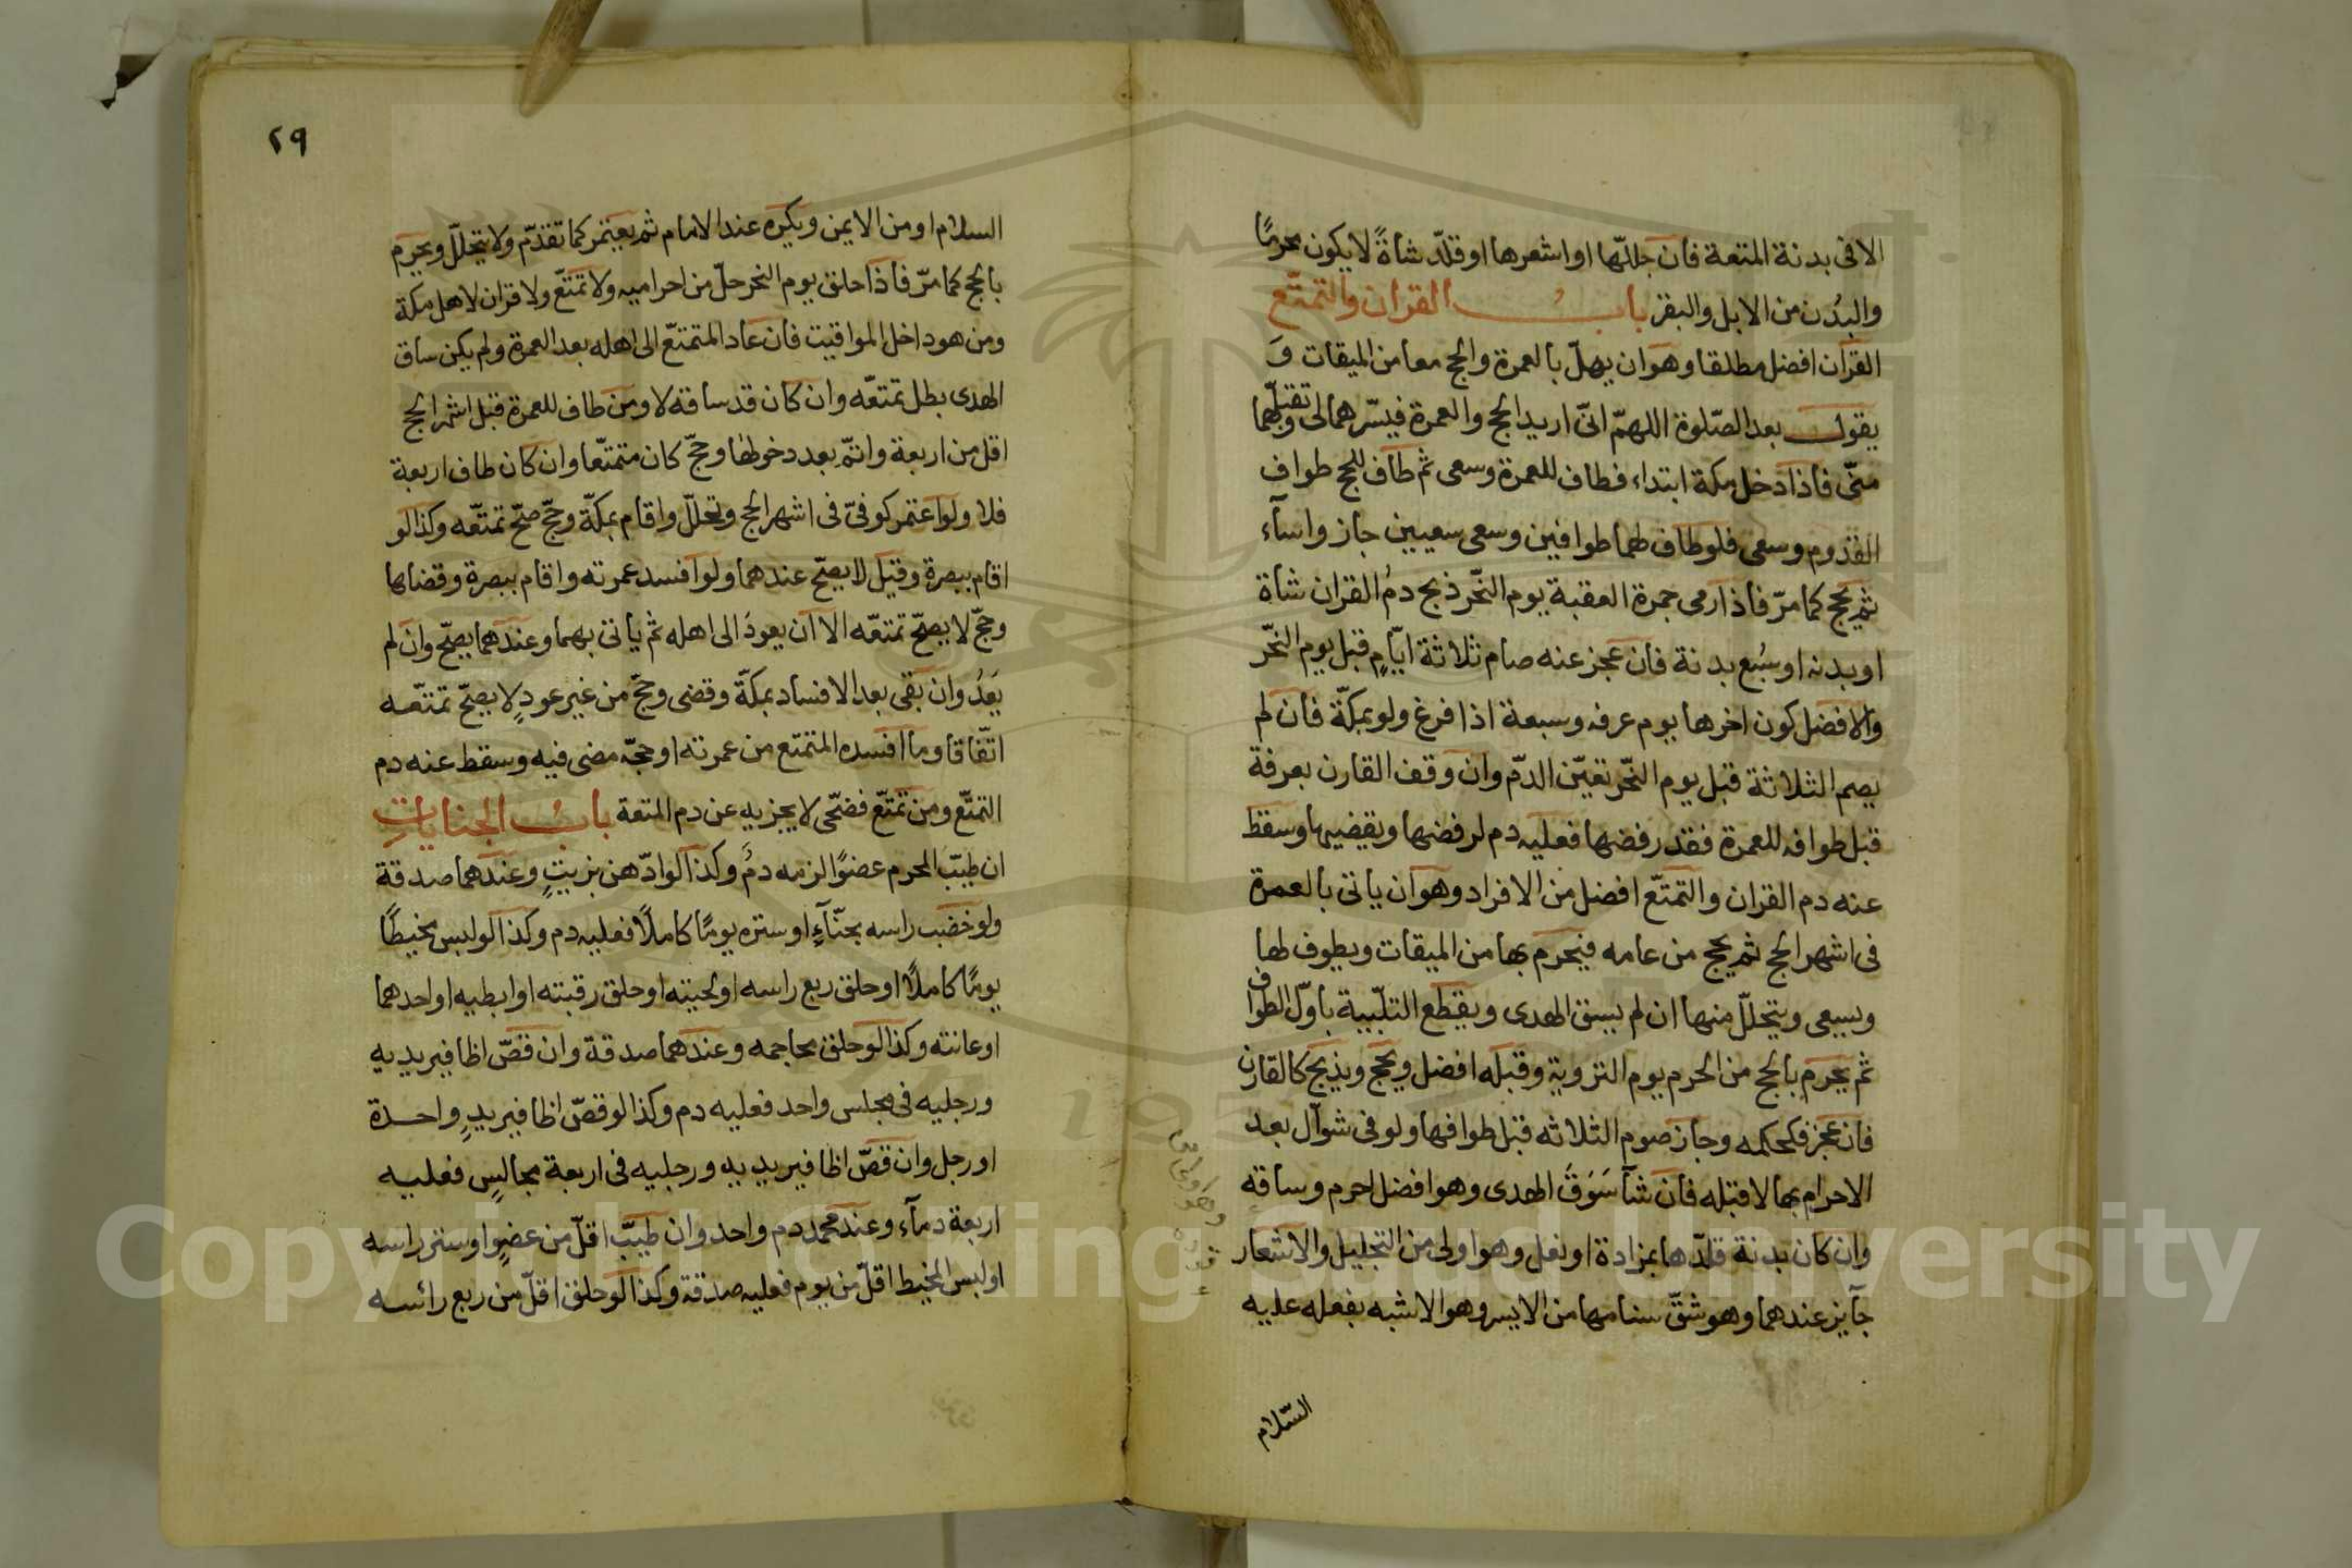 الا فى بدنة المتعة فان جللّها او اشعرها او قلّد شاةً لا يكون محرمًا
والبُدن من الابل والبقر بابُ القران والتمتّع
القران افضل مطلقا وهو ان يهلّ بالعمرة والحج معا من الميقات وَ
يقول بعد الصّلوة اللهمّ انىّ اريد الحج والعمرة فيسّرهما لى وتقبلّهما
منّى فاذا دخل مكة ابتداء فطاف للعمرة وسعى ثم طاف للحج طواف
القدوم وسعى فلو طاف لهما طوافين وسعى سعيين جاز واسآء
ثم يحج كما مرّ فاذا رمى جمرة العقبة يوم النّحر ذبح دمُ القران شاة
او بدنه او سُبع بدنة فان عجز عنه صام ثلاثة ايّامٍ قبل يوم النّحر
والافضل كون اخرها يوم عرفه وسبعة اذا فرغ ولو بمكّة فان لم
يصم الثلاثة قبل يوم النّحر تعيّن الدّم وان وقف القارن بعرفة
قبل طوافه للعمرة فقد رفضها فعليه دم لرفضها ويقضيها وسقط
عنه دم القران والتمتّع افضل من الافراد وهو ان ياتى بالعمرة
فى اشهر الحج ثم يحج من عامه فيحرم بها من الميقات ويطوف لها
ويسعى ويتحللّ منها ان لم يسق الهدى ويقطع التلّبية باوّل الطواف
ثم يحرم بالحج من الحرم يوم التروية وقبله افضل ويحج ويذبح كالقارن
فان عجز فكحكمه وجاز صوم الثلاثه قبل طوافها ولو فى شوّال بعد
الاحرام بها لا قبله فان شآ سَوَقَ الهدى وهو افضل احرم وساقه
وان كان بدنة قلّدها بمزادة او نعل وهو اولى من التجليل والاشعار
جآيز عندهما وهو شقّ سنامها من الايسر وهو الاشبه بفعله عليه
السّلام
٢٩
السلام او من الايمن ويكره عند الامام ثم يعتمر كما تقدّم ولا يتحللّ ويحرم
بالحج كما مرّ فاذا حلق يوم النحر حلّ من احراميه ولا تمتّع ولا قران لاهل مكة
ومن هو داخل المواقيت فان عاد المتمتّع الى اهله بعد العمرة ولم يكن ساق
الهدى بطل تمتعّه وان كان قد ساقه لا ومن طاف للعمرة قبل اشهر الحج
اقل من اربعة واتمّ بعد دخولها وحجّ كان متمتعّا وان كان طاف اربعة
فلا ولو اعتمر كوفىّ فى اشهر الحج وتحللّ واقام بمكّة وحجّ صحّ تمتعّه وكذا لو
اقام ببصرة وقيل لا يصحّ عندهما ولو افسد عمرته واقام ببصرة وقضاها
وحجّ لا يصحّ تمتعّه الا ان يعودَ الى اهله ثم ياتى بهما وعندهما يصحّ وان لم
يَعُدُ وان بقى بعد الافساد بمكّة وقضى وحجّ من غير عودٍ لا يصحّ تمتعّه
اتّفاقا وما افسده المتمتع من عمرته او حجّه مضى فيه وسقط عنه دم
التمتّع ومن تمتّع فضحّى لا يجزيه عن دم المتعة بابُ الجنايات
ان طيّب المحرم عضوًا لزمه دمُ وكذا لو ادّهن بزيتٍ وعندهما صدقة
ولو خضب راسه بحنّآءٍ او ستره يومًا كاملًا فعليه دم وكذا لو لبس مخيطًا
يومًا كاملًا او حلق ربع راسه او لحيته او حلق رقبته او ابطيه او احدهما
او عانته وكذا لو حلق محاجمه وعندهما صدقة وان قصّ اظافير يديه
ورجليه فى مجلس واحد فعليه دم وكذا لو قصّ اظافير يدٍ واحدة
او رجل وان قصّ اظافير يديه ورجليه فى اربعة مجالسٍ فعليه
اربعة دمآء وعند محمد دم واحد وان طيّب اقلّ من عضوٍ او ستر راسه
او لبس المخيط اقلّ من يوم فعليه صدقة وكذا لو حلق اقلّ من ربع رائسه
Copyright © King Saud University